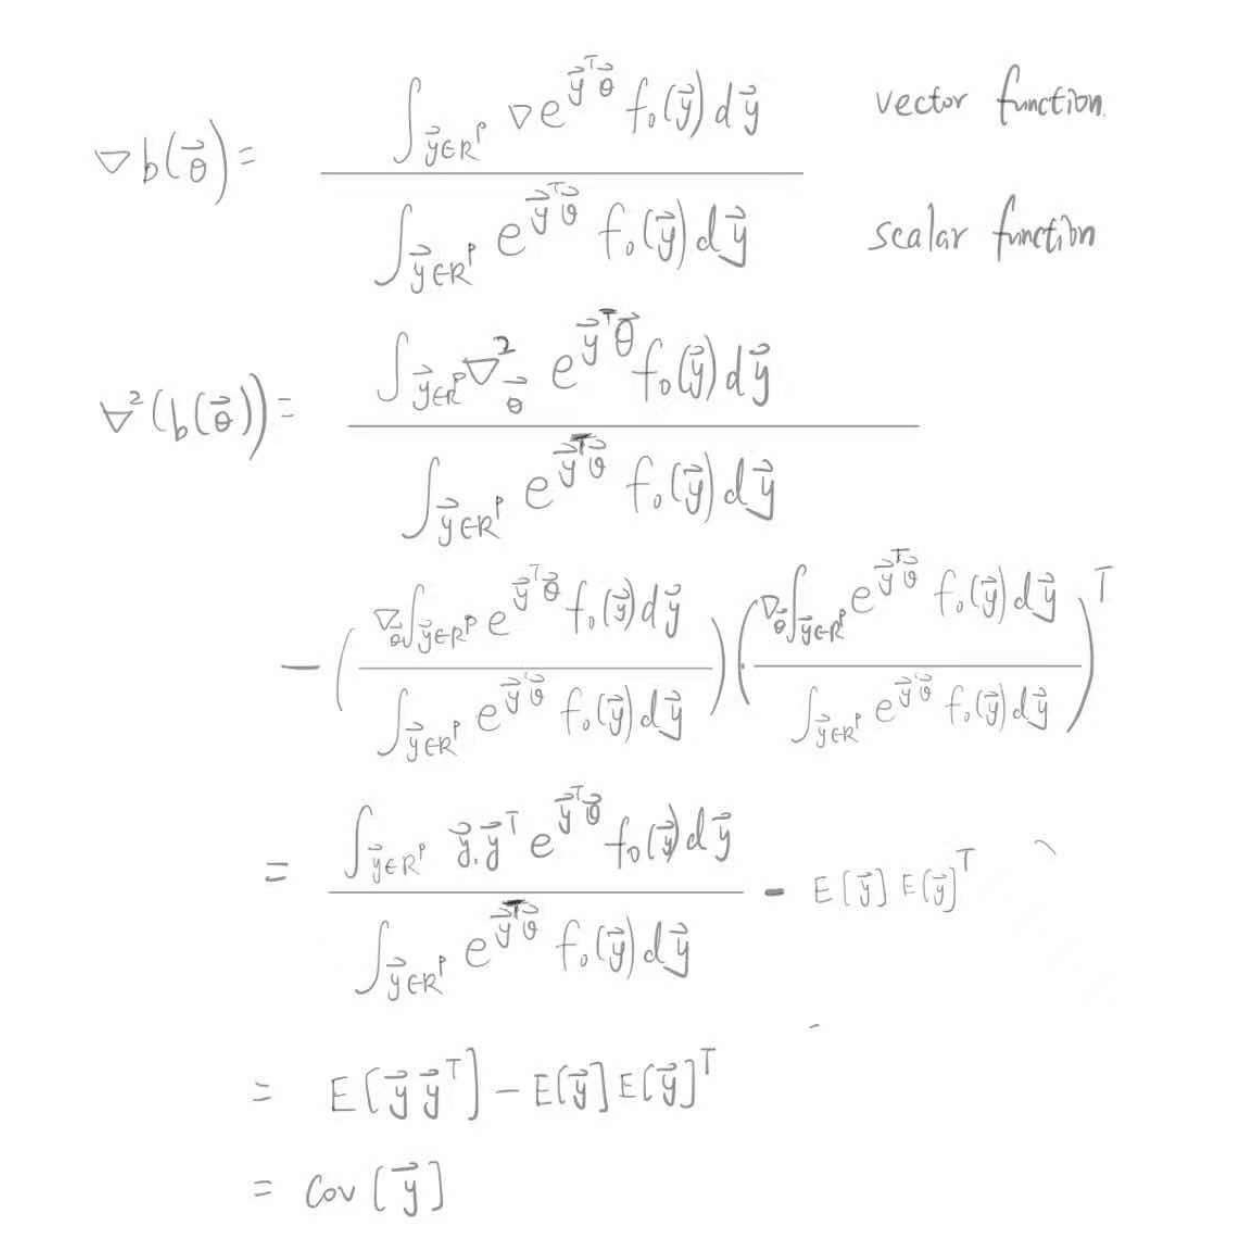 $\nabla b(\vec{\theta}) = \frac{\int_{\vec{y} \in R^p} \nabla e^{\vec{y}^T \vec{\theta}} f_0(\vec{y}) d\vec{y}}{\int_{\vec{y} \in R^p} e^{\vec{y}^T \vec{\theta}} f_0(\vec{y}) d\vec{y}}$ vector function. scalar function
$\nabla^2 (b(\vec{\theta})) = \frac{\int_{\vec{y} \in R^p} \nabla^2_{\vec{\theta}} e^{\vec{y}^T \vec{\theta}} f_0(\vec{y}) d\vec{y}}{\int_{\vec{y} \in R^p} e^{\vec{y}^T \vec{\theta}} f_0(\vec{y}) d\vec{y}}$
$- \left( \frac{\nabla_{\vec{\theta}} \int_{\vec{y} \in R^p} e^{\vec{y}^T \vec{\theta}} f_0(\vec{y}) d\vec{y}}{\int_{\vec{y} \in R^p} e^{\vec{y} \vec{\theta}} f_0(\vec{y}) d\vec{y}} \right) \cdot \left( \frac{\nabla_{\vec{\theta}} \int_{\vec{y} \in R^p} e^{\vec{y}^T \vec{\theta}} f_0(\vec{y}) d\vec{y}}{\int_{\vec{y} \in R^p} e^{\vec{y} \vec{\theta}} f_0(\vec{y}) d\vec{y}} \right)^T$
$= \frac{\int_{\vec{y} \in R^p} \vec{y} . \vec{y}^T e^{\vec{y}^T \vec{\theta}} f_0(\vec{y}) d\vec{y}}{\int_{\vec{y} \in R^p} e^{\vec{y}^T \vec{\theta}} f_0(\vec{y}) d\vec{y}} - E[\vec{y}] E[\vec{y}]^T$
$= E[\vec{y} \vec{y}^T] - E[\vec{y}] E[\vec{y}]^T$
$= Cov[\vec{y}]$